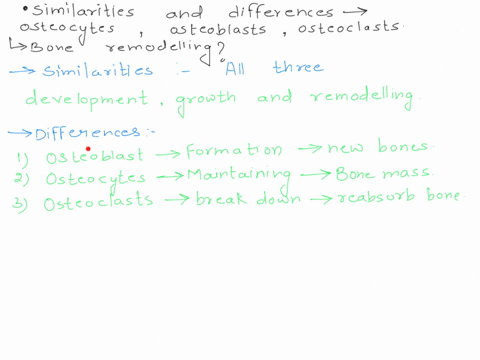 • Similarities and differences →
osteocytes, osteoblasts, osteoclasts.
↳ Bone remodelling?
→ Similarities :- All three
development, growth and remodelling.
→ Differences:-
1) Osteoblast → Formation → new bones.
2) Osteocytes → Maintaining → Bone mass.
3) Osteoclasts → break down → reabsorb bone.